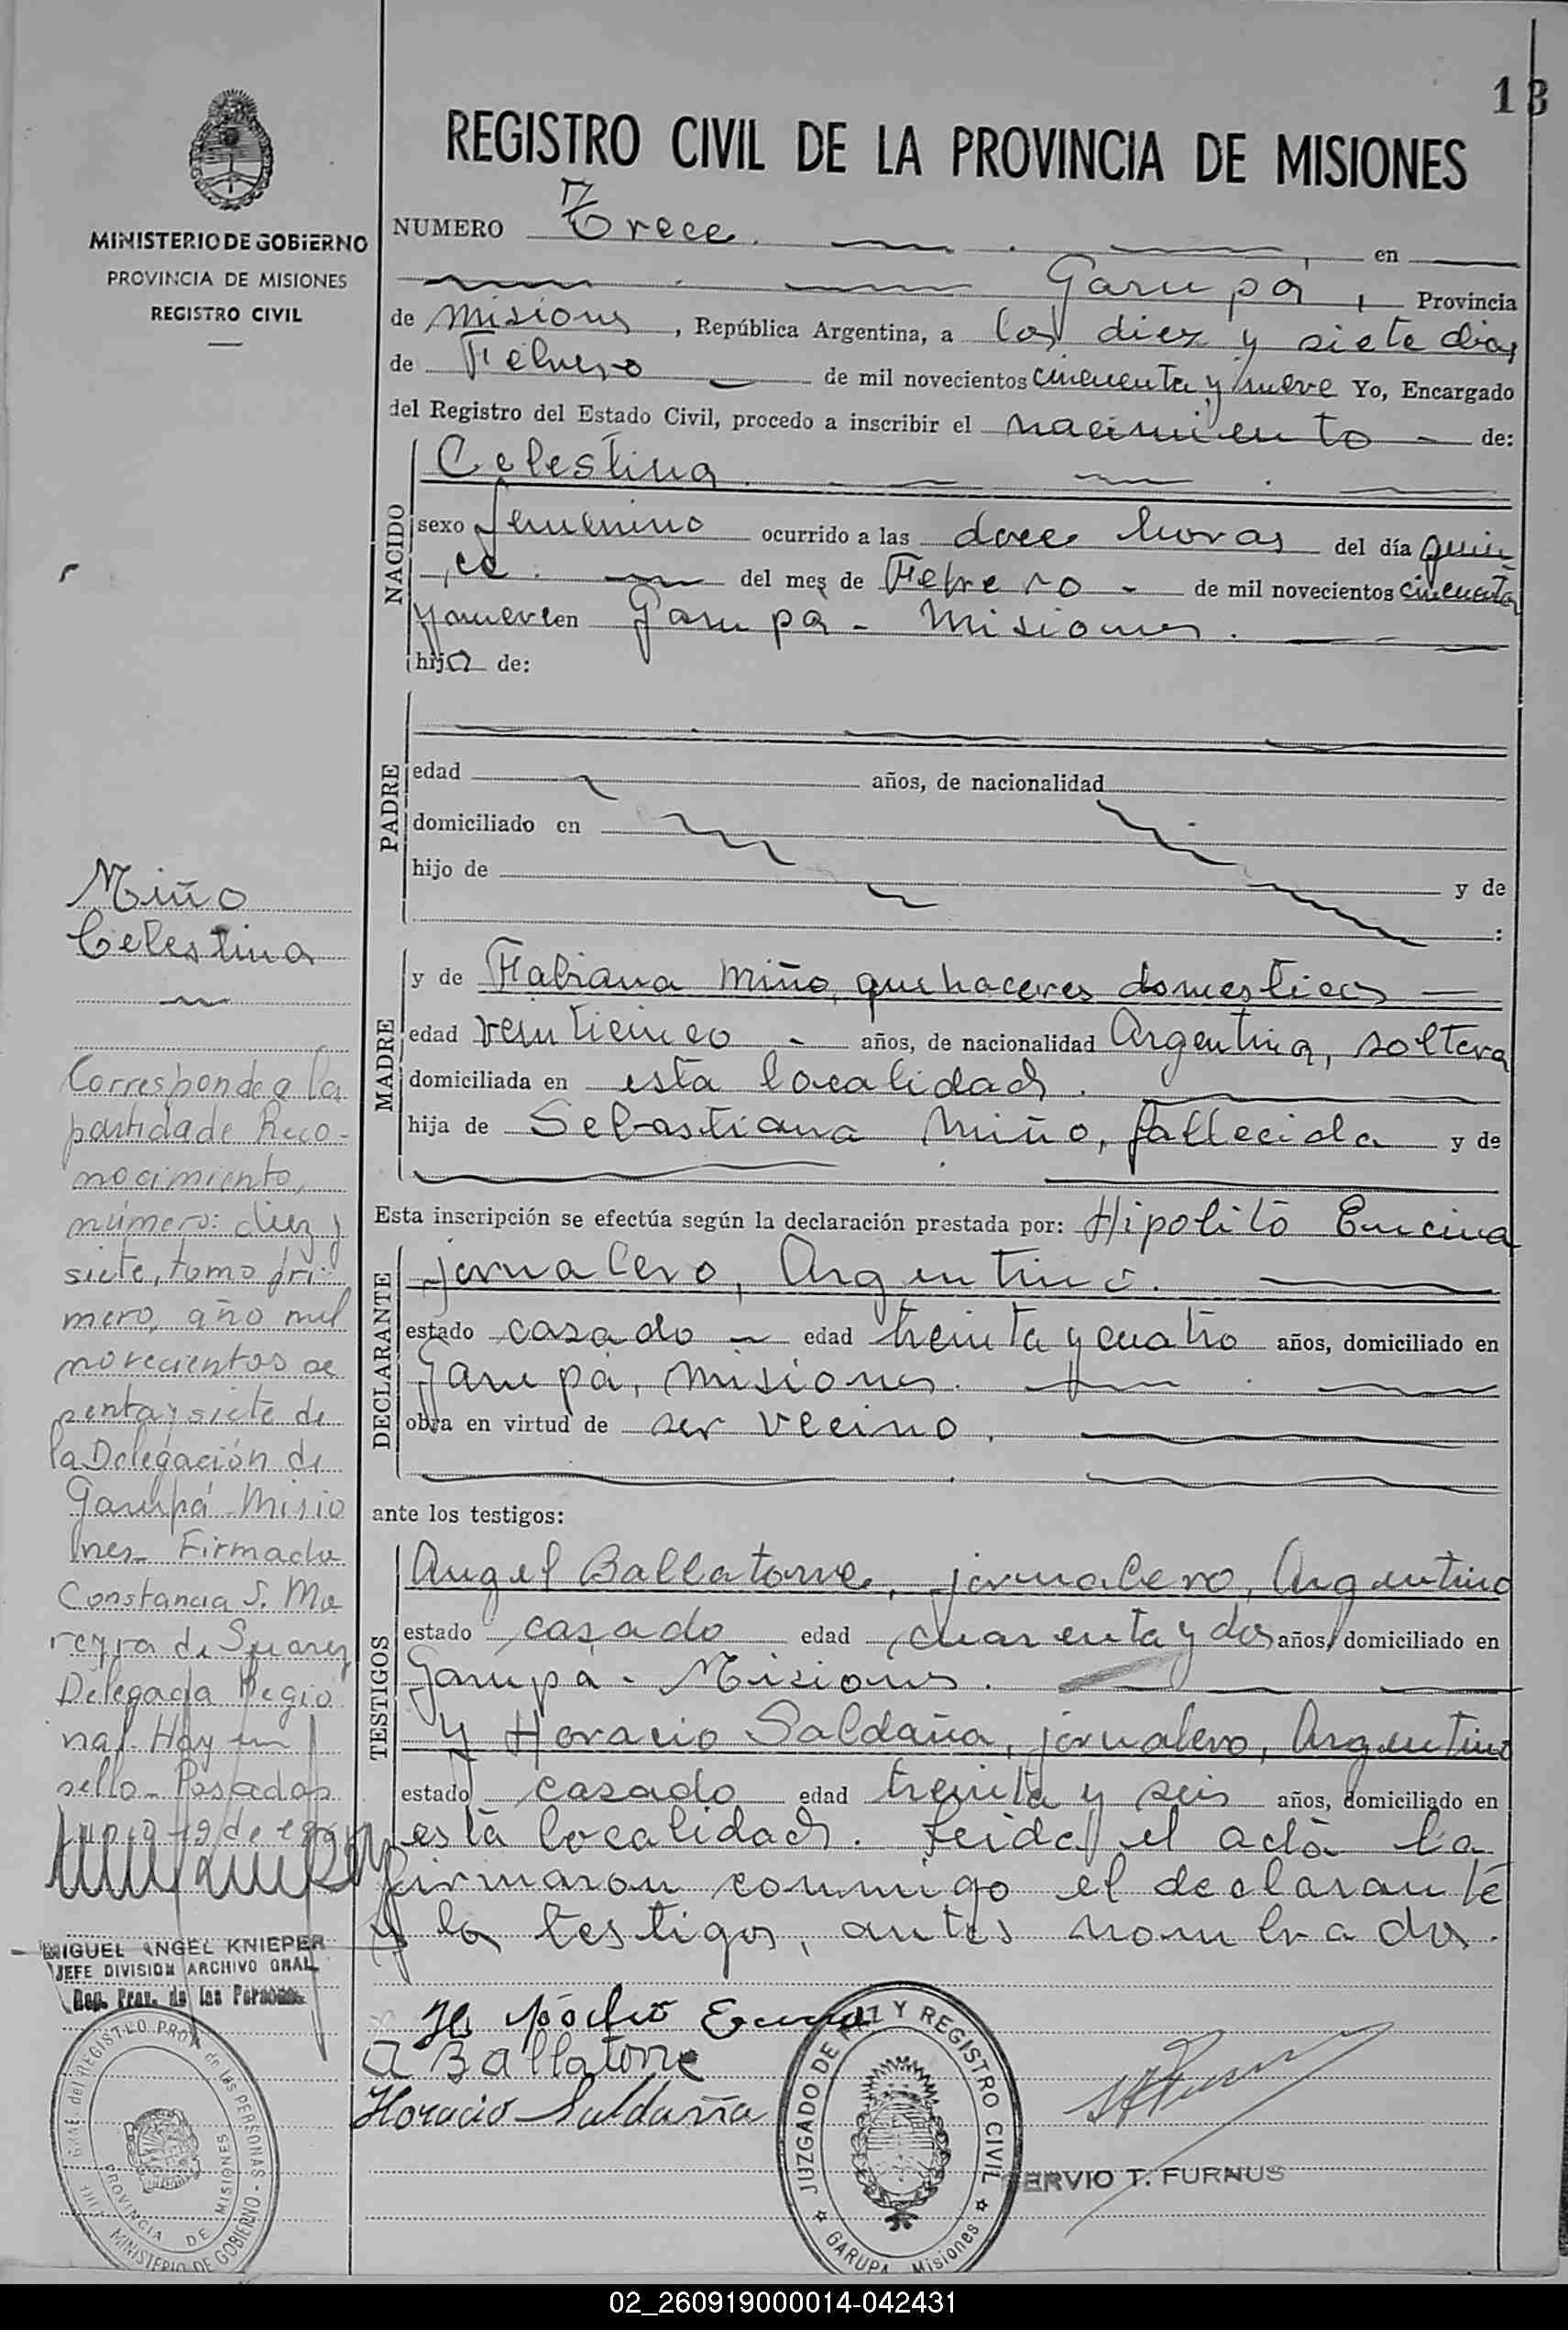 13
REGISTRO CIVIL DE LA PROVINCIA DE MISIONES
MINISTERIO DE GOBIERNO
PROVINCIA DE MISIONES
REGISTRO CIVIL
NUMERO Trece. en
Garupá, Provincia
de Misiones, República Argentina, a los diez y siete dias
de Febrero de mil novecientos cincuenta y nueve Yo, Encargado
del Registro del Estado Civil, procedo a inscribir el nacimiento de:
NACIDO
Celestina.
sexo femenino ocurrido a las doce horas del día quin
ce. del mes de Febrero - de mil novecientos cincuenta
y nueve en Garupá - Misiones.
hija de:
PADRE
edad años, de nacionalidad
domiciliado en
hijo de y de
:
MADRE
y de Fabiana Miño, quehaceres domesticos
edad veinticinco - años, de nacionalidad Argentina, soltera
domiciliada en esta localidad.
hija de Sebastiana Miño, fallecida y de
Esta inscripción se efectúa según la declaración prestada por: Hipolito Encina
DECLARANTE
jornalero, Argentino.
estado casado edad treinta y cuatro años, domiciliado en
Garupá, Misiones.
obra en virtud de ser vecino.
ante los testigos:
TESTIGOS
Angel Ballatorre, jornalero, Argentino
estado casado edad cuarenta y dos años, domiciliado en
Garupá - Misiones.
y Horacio Saldaña, jornalero, Argentino
estado casado edad treinta y seis años, domiciliado en
esta localidad. Leida el acta la
firmaron conmigo el declarante
y los testigos, antes nombrados.
Hipólito Encina
A Ballatorre
Horacio Saldaña
JUZGADO DE PAZ Y REGISTRO CIVIL
GARUPA Misiones
SERVIO T. FURNUS
Miño
Celestina
Corresponde a la
partida de Reco-
nocimiento,
número: diez y
siete, tomo pri-
mero, año mil
novecientos se
tenta y siete de
la Delegación de
Garupá - Misio
nes - Firmado
Constancia S. Mo
reyra de Suarez
Delegada Regio
nal. Hay un
sello - Posadas
Junio 19 de
MIGUEL ANGEL KNIEPER
JEFE DIVISION ARCHIVO GRAL
Reg. Prov. de las Personas
del REGISTRO PROV. de las PERSONAS - MINISTERIO DE GOBIERNO
PROVINCIA DE MISIONES
02_260919000014-042431